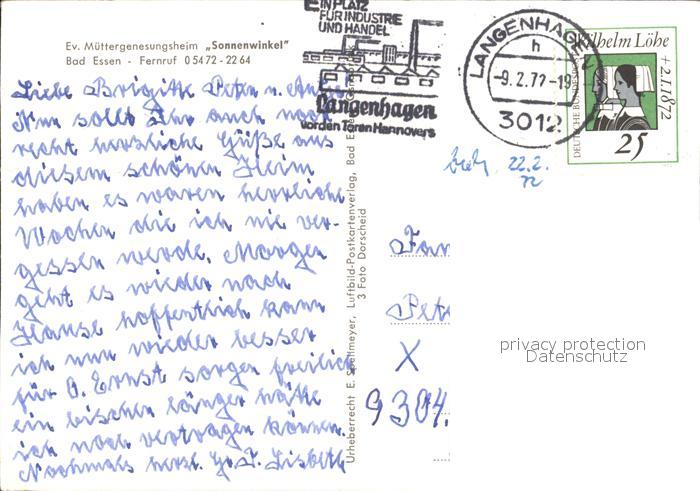 Ev. Müttergenesungsheim „Sonnenwinkel"
Bad Essen - Fernruf 0 54 72 - 22 64
Liebe Brigitte Peter u.
Nun sollt Ihr auch noch
recht herzliche Grüße aus
diesem schönen Heim
haben es waren herrliche
Wochen die ich nie ver-
gessen werde. Morgen
geht es wieder nach
Hause hoffentlich kann
ich nun wieder besser
für O. Ernst sorgen freilich
ein bischen länger hätte
ich noch vertragen können.
Nochmals herzl. Gr. Lisbeth
Urheberrecht E. Spellmeyer, Luftbild-Postkartenverlag, Bad Essen
3 Foto Dorscheid
EIN PLATZ
FÜR INDUSTRIE
UND HANDEL
Langenhagen
vor den Toren Hannovers
LANGENHAGEN
h
-9.2.72-19
3012
Wilhelm Löhe
+2.1.1872
DEUTSCHE BUNDESPOST
25
22.2.
72
Fam
Pete
X
9304.
privacy protection
Datenschutz